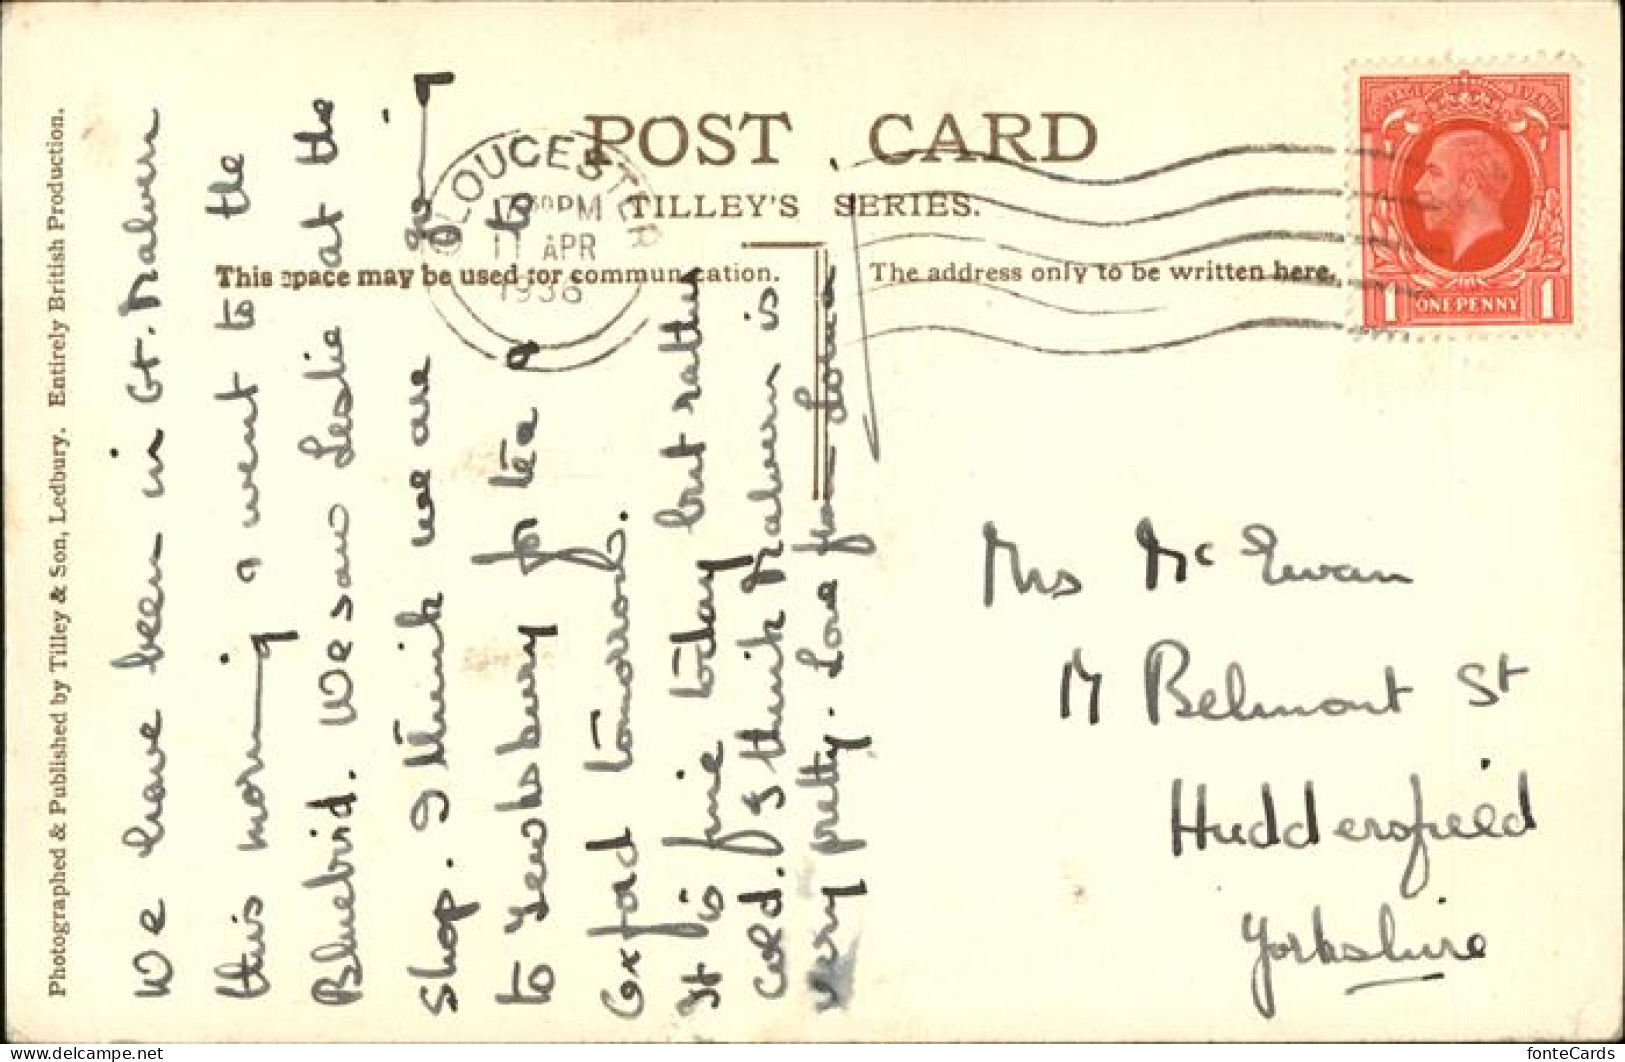 POST CARD
TILLEY'S SERIES.
This space may be used for communication.
The address only to be written here.
GLOUCESTER
PM
11 APR
193
ONE PENNY
1 1
Photographed & Published by Tilley & Son, Ledbury. Entirely British Production.
We have been in Gt. Malvern
this morning & went to the
Bluebird. We saw Leslie at the
shop. I think we are going
to Tewksbury for tea & to
Oxford tomorrow.
It is fine today but rather
cold. I think Malvern is
very pretty. Love from Lorna
Mrs McEwan
Belmont St
Huddersfield
Yorkshire
fonteCards